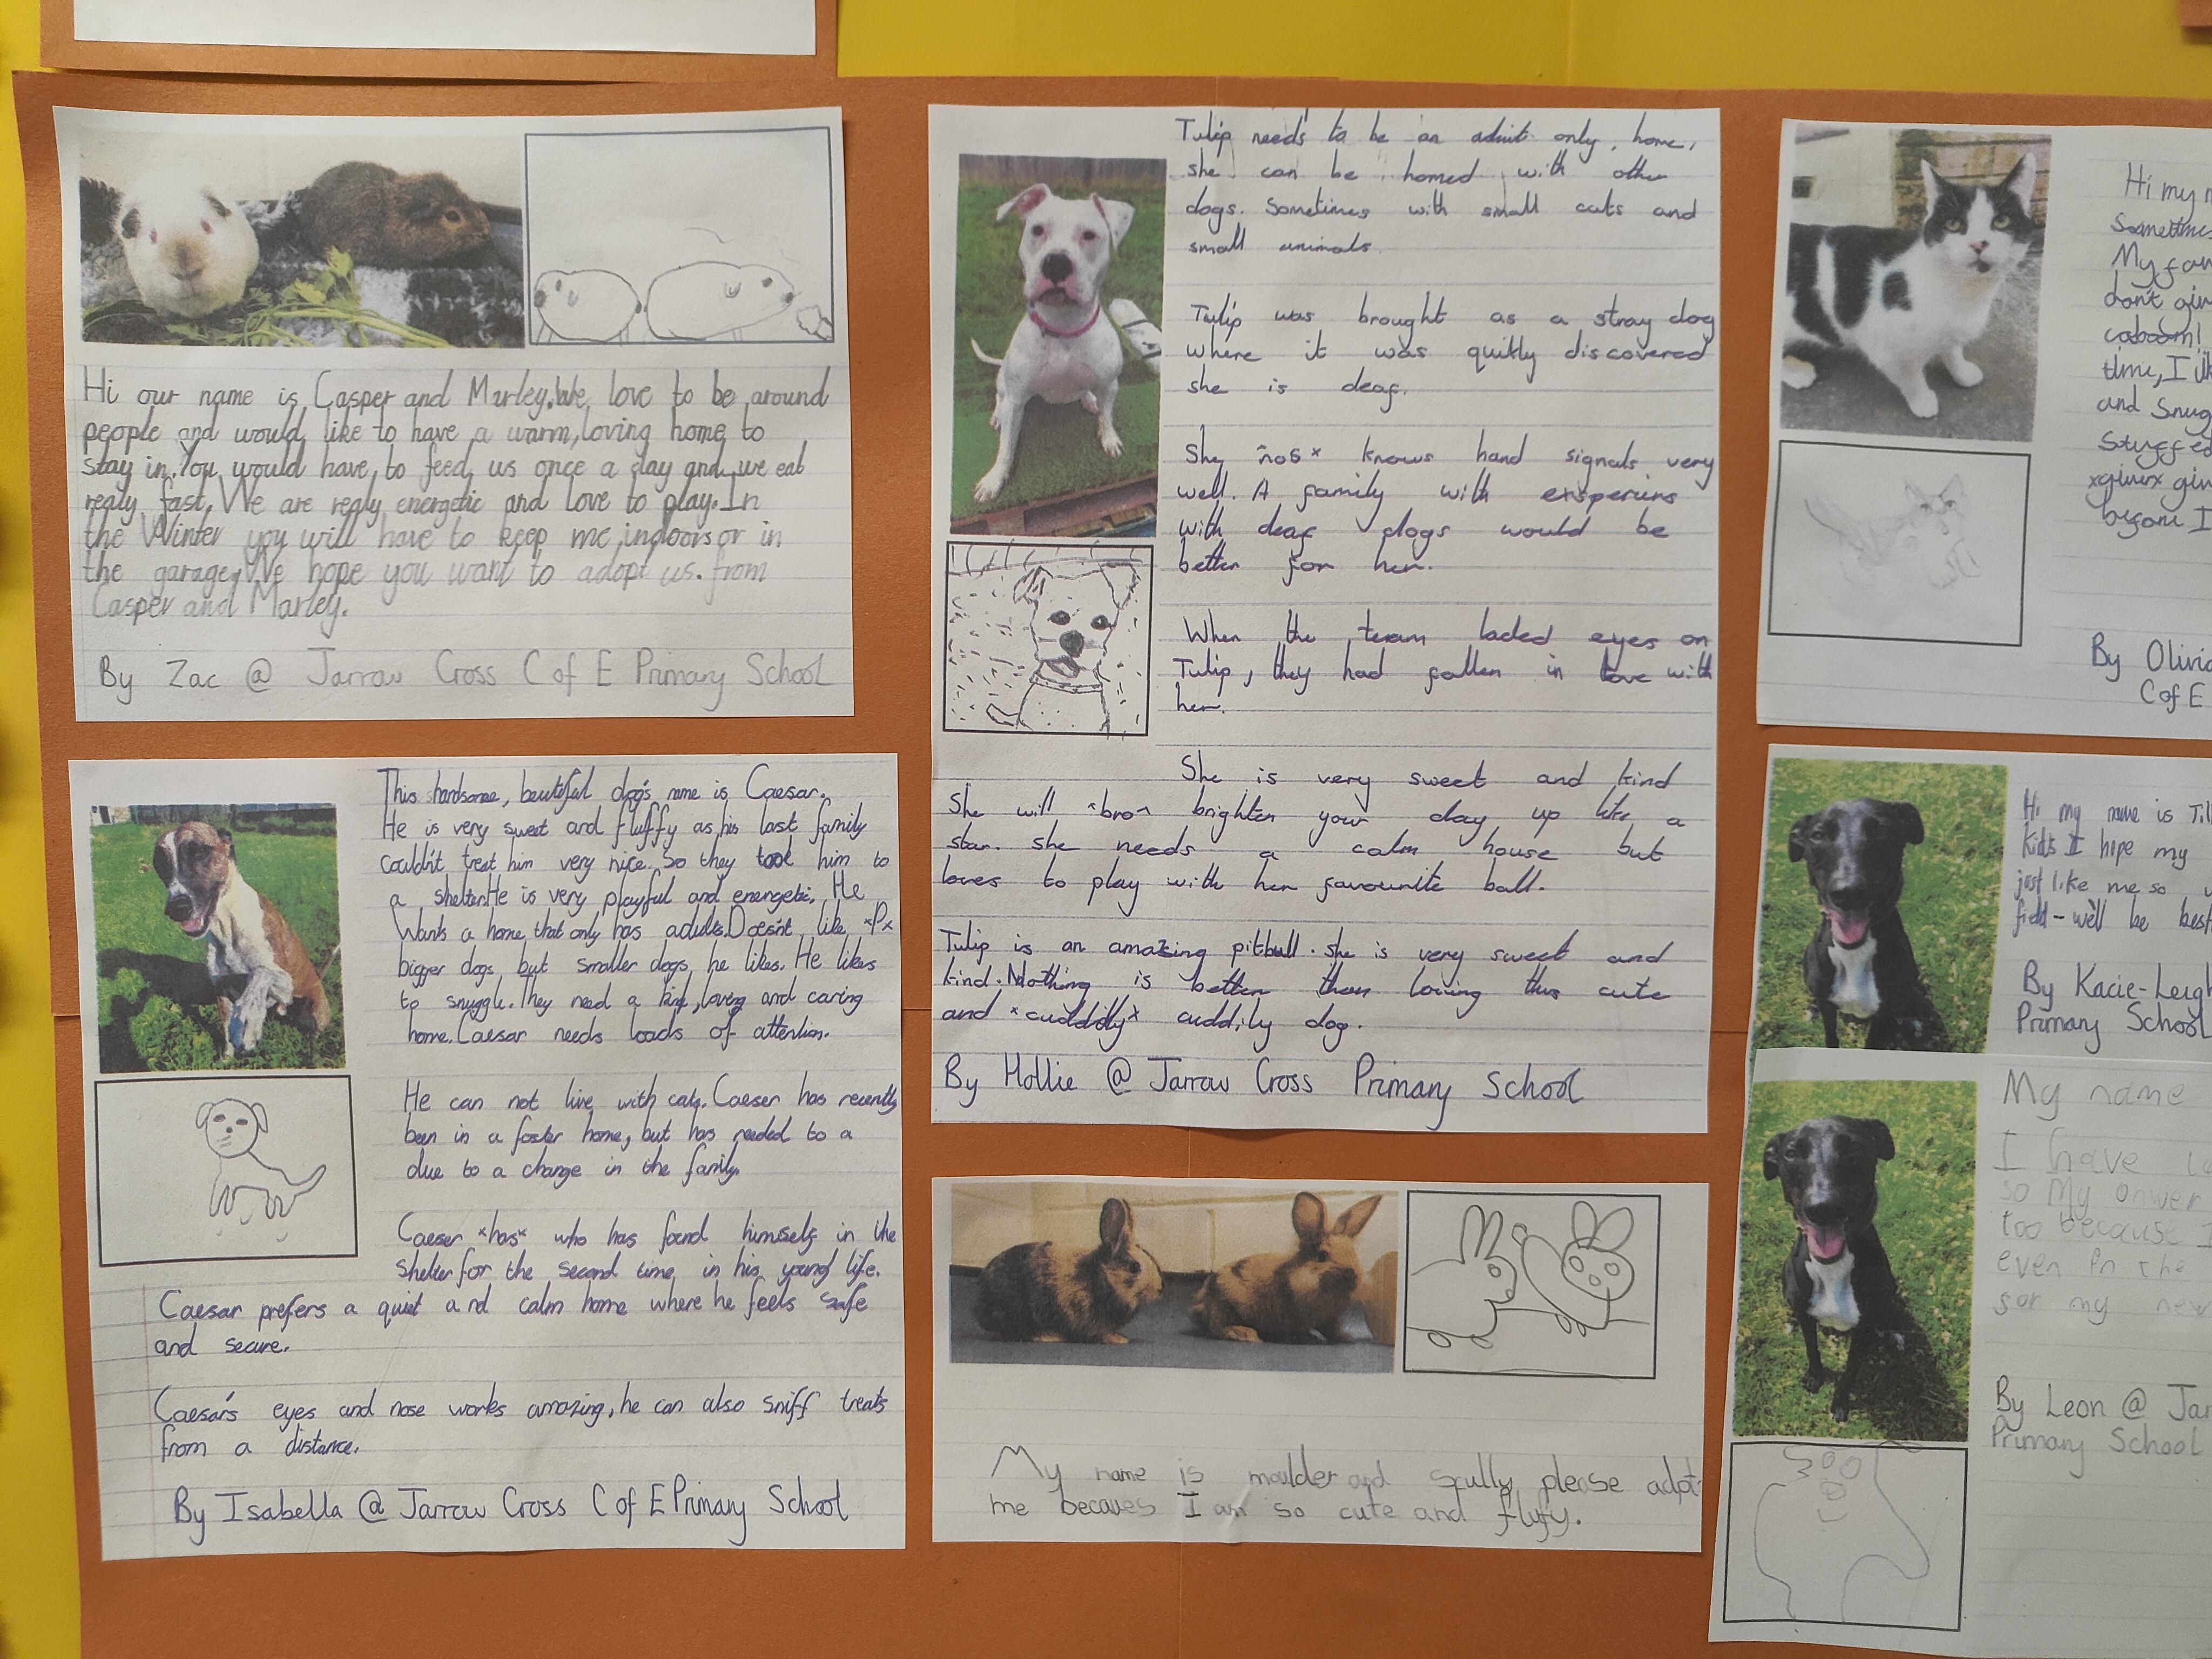 Hi our name is Casper and Marley.We love to be around
people and would like to have a warm,loving home to
stay in.You would have to feed us once a day and we eat
realy fast.We are realy energetic and love to play.In
the Winter you will have to keep me indoors or in
the garage.We hope you want to adopt us. from
Casper and Marley.
By Zac @ Jarrow Cross C of E Primary School
This handsome, beutiful dog's name is Caesar.
He is very sweet and fluffy as his last family
couldn't treat him very nice. So they took him to
a shelter.He is very playful and energetic. He
Wants a home that only has adults.Doesn't like *P*
bigger dogs but smaller dogs he likes. He likes
to snuggle. They need a kind, loving and caring
home. Caesar needs loads of attention.
He can not live with cats. Caeser has recently
been in a foster home, but has needed to a
due to a change in the family.
Caeser *has* who has found himself in the
shelter for the second time in his young life.
Caesar prefers a quiet and calm home where he feels safe
and secure.
Caesar's eyes and nose works amazing, he can also sniff treats
from a distance.
By Isabella @ Jarrow Cross C of E Primary School
Tulip needs to be an adult only, home,
she can be homed with other
dogs. Sometimes with small cats and
small animals.
Tulip was brought as a stray dog
where it was quitly discovered
she is deaf.
She knows hand signals very
well. A family with
with deaf dogs would be
better for her.
When the team laded eyes on
Tulip, they had fallen in love with
her.
She is very sweet and kind
She will *bro* brighten your day up like a
star. she needs a calm house but
loves to play with her favourite ball.
Tulip is an amazing pitbull. she is very sweet and
kind. Nothing is better than loving this cute
and *cuddily* cuddily dog.
By Hollie @ Jarrow Cross Primary School
My name is moulder and scully please adopt
me becaues I am so cute and flufy.
Hi my
Sometimes
My
don't
caboom!
time, I
and
Stuffed

before I
By Olivia
C of E
Hi my name is
kids I hope my
just like me so
field - we'll be
By Kacie-Leigh
Primary School
My name
I have
so My onwer
too because I
even in the
for my new
By Leon @ Jar
Primary School